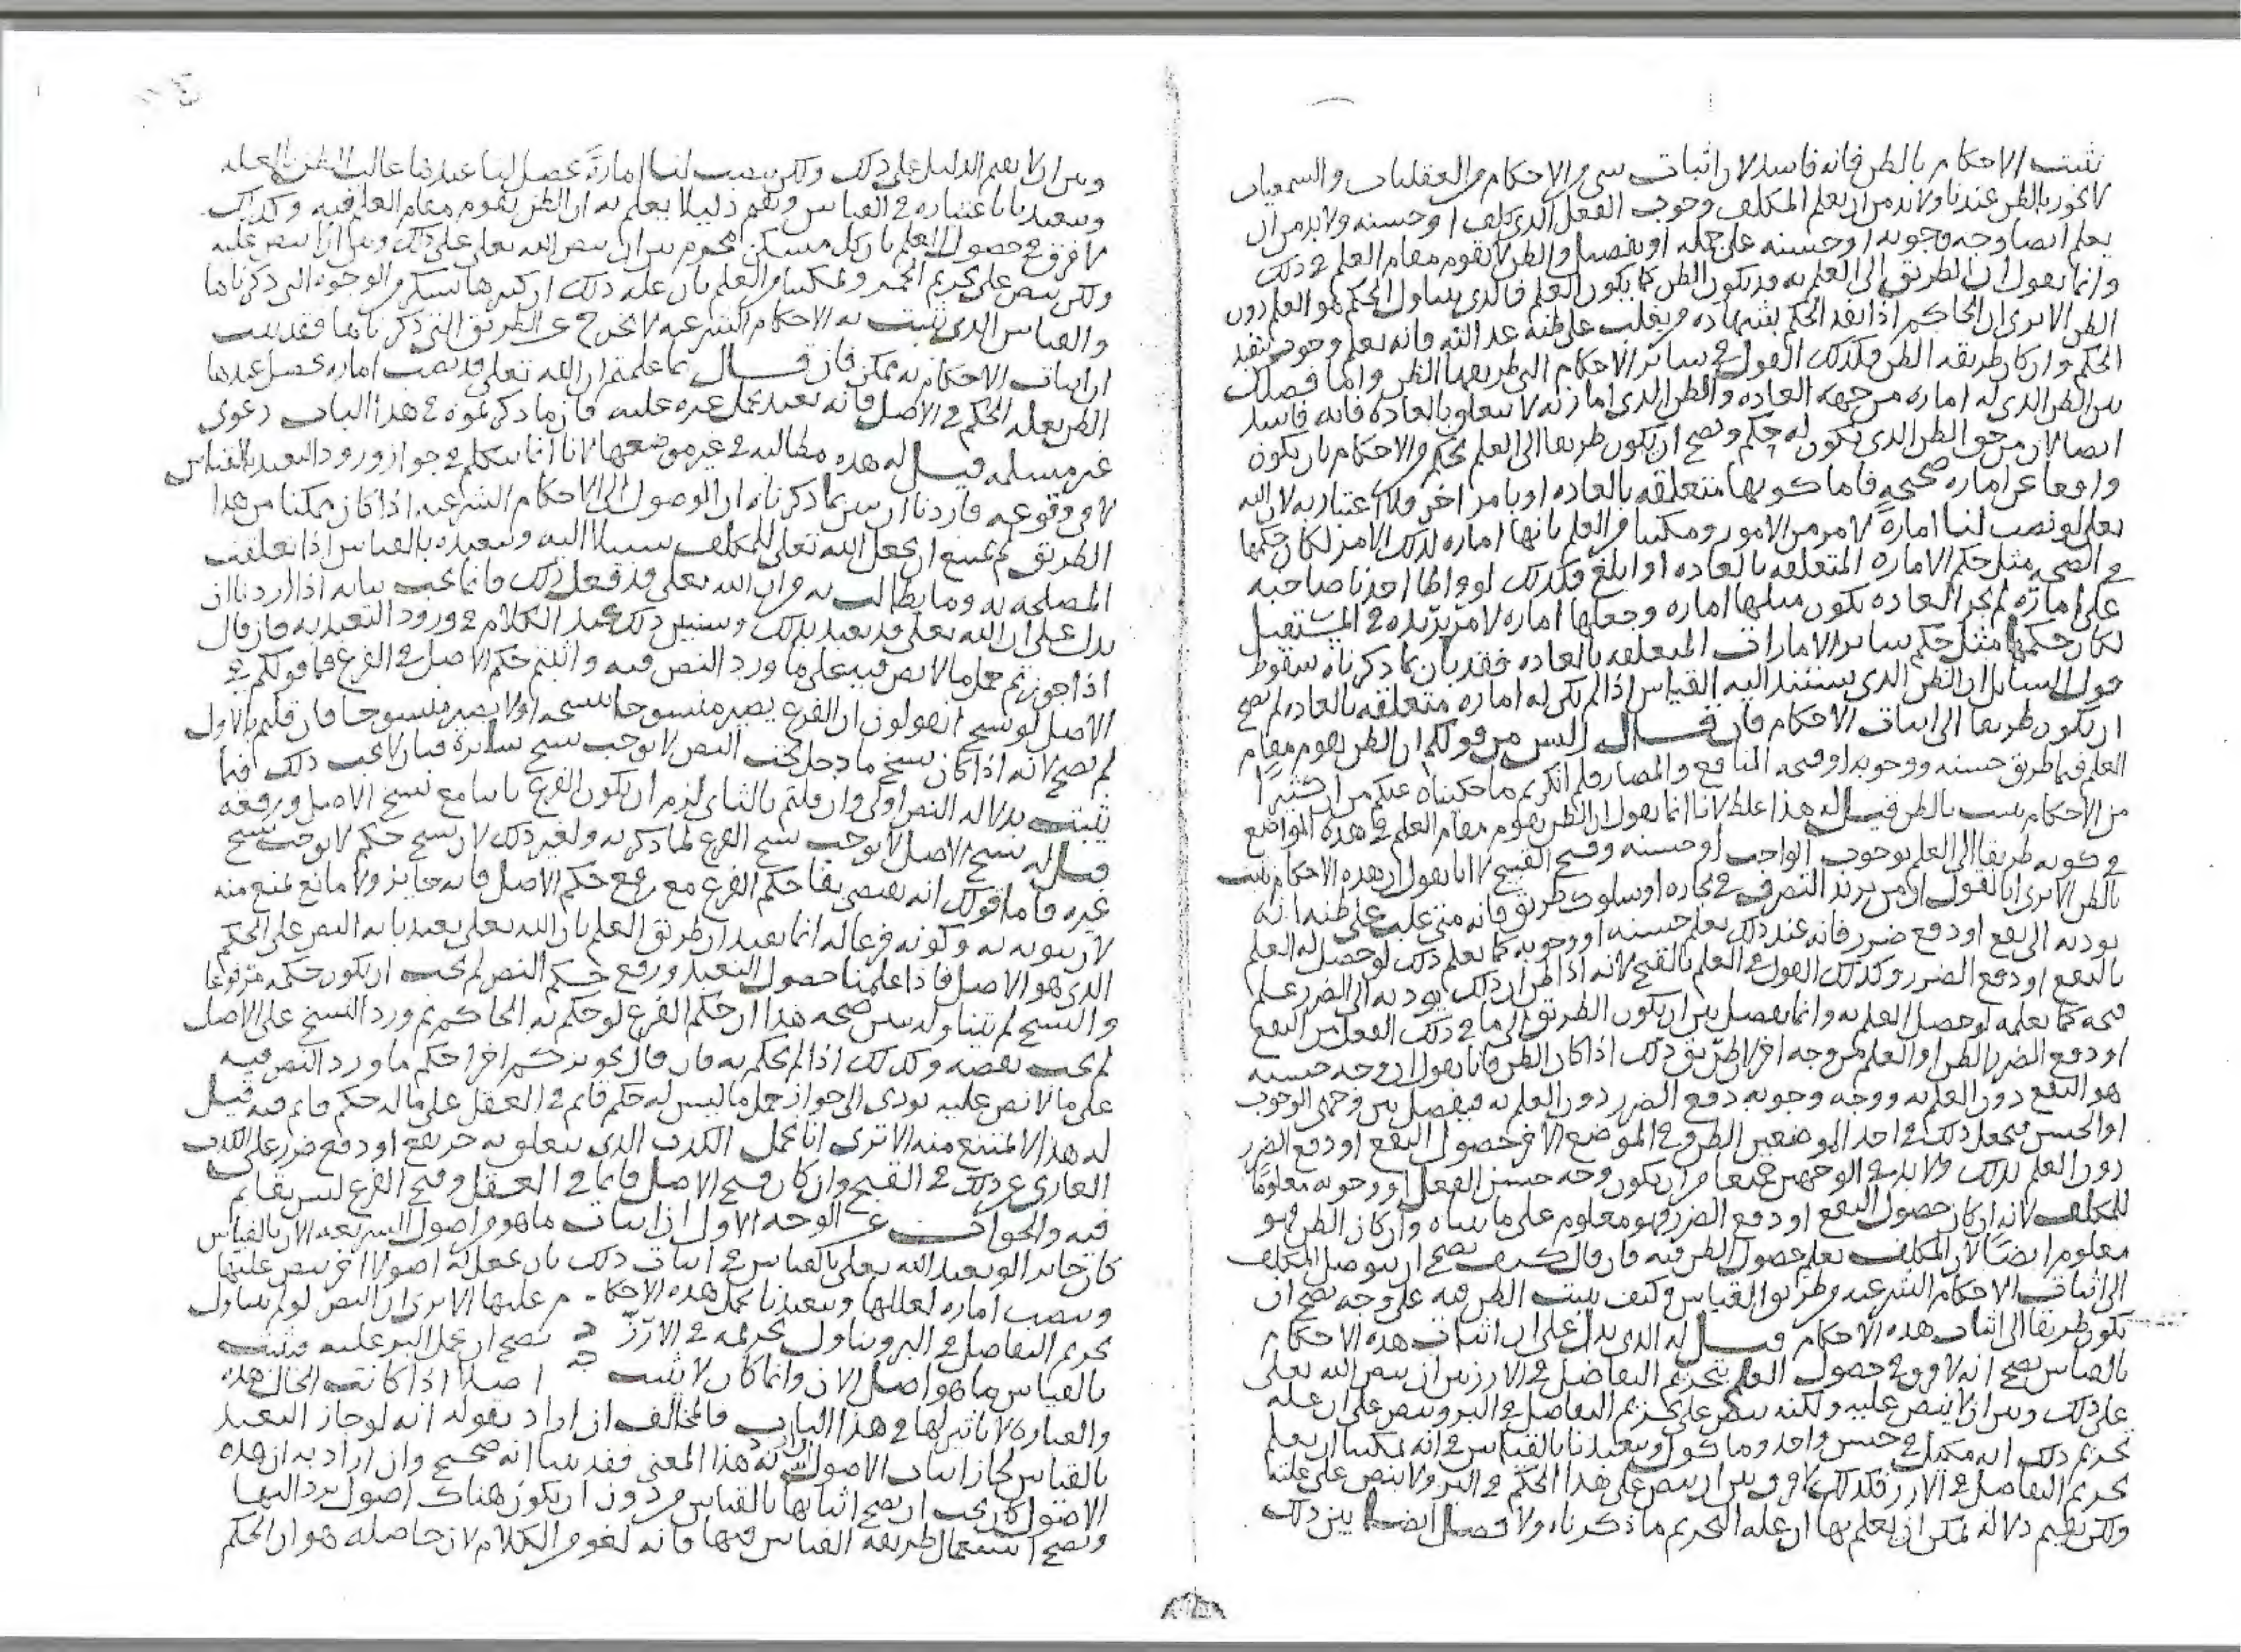 تثبت الاحكام بالظن فانه فاسد لان اثبات شي من الاحكام من العقليات والسمعيات
لا يجوز بالظن عندنا ولا بد من ان يعلم المكلف وجوب الفعل الذي كلف او حسنه ولا بد من ان
يعلم ايضا وجه وجوبه او حسنه على جمله او تفصيل والظن لا يقوم مقام العلم في ذلك
وانما يقول ان الطريق الى العلم به قد يكون الظن كما يكون العلم فالذي يتناول الحكم هو العلم دون
الظن الا ترى ان الحاكم اذا نفذ الحكم بشهاده من يغلب على ظنه عدالته فانه يعلم وجوب تنفيذ
الحكم وان كان طريقه الظن فكذلك القول في سائر الاحكام التي طريقها الظن وانما فصلك
بين الظن الذي له اماره من جهه العاده والظن الذي امارته لا تتعلق بالعاده فانه فاسد
ايضا لان من حق الظن الذي يكون له حكم ويصح ان يكون طريقا الى العلم بحكم من الاحكام بان يكون
واقعا عن اماره صحيحه فاما كونها متعلقه بالعاده او بامر اخر فلا اعتبار به لان الله
تعالى لو نصب لنا امارة لامر من الامور ومكننا من العلم بانها اماره لذلك الامر لكان حكمها
في الصحه مثل حكم الاماره المتعلقه بالعاده او ابلغ فكذلك لو واطا احدنا صاحبه
على امارة لم تجر العاده بكون مثلها اماره وجعلها اماره لامر يريده في المستقبل
لكان حكمها مثل حكم سائر الامارات المتعلقه بالعاده فقد بان بما ذكرناه سقوط
قول السائل ان الظن الذي يستند اليه القياس اذا لم يكن له اماره متعلقه بالعاده لم يصح
ان يكون طريقا الى اثبات الاحكام فان قال اليس من قولكم ان الظن يقوم مقام
العلم فيما طريق حسنه ووجوبه او قبحه المنافع والمضار فلم انكرتم ما حكيناه عنكم من ان كثيرا
من الاحكام يثبت بالظن قيل له هذا غلط لانا انما يقول ان الظن يقوم مقام العلم في هذه المواضع
في كونه طريقا الى العلم بوجوب الواجب او حسنه وقبح القبيح لا انا يقول ان هذه الاحكام تثبت
بالظن الا ترى انا نقول ان من يريد التصرف في تجاره او سلوك طريق فانه متى غلب على ظنه انه
يوديه الى نفع او دفع ضرر فانه عند ذلك يعلم حسنه او وجوبه كما يعلم ذلك لو حصل له العلم
بالنفع او دفع الضرر وكذلك القول في العلم بالقبح لانه اذا ظن ان ذلك يوديه الى الضرر علم
قبحه كما يعلمه لو حصل العلم به وانما يفصل بين ان يكون الطريق الى ما في ذلك الفعل من النفع
او دفع الضرر الظن او العلم من وجه اخر لان طريق ذلك اذا كان الظن فانا يقول ان وجه حسنه
هو النفع دون العلم به ووجه وجوبه دفع الضرر دون العلم به فيفصل بين وجهي الوجوب
او الحسن فيجعل ذلك في احد الموضعين الظن وفي الموضع الاخر حصول النفع او دفع الضرر
دون العلم بذلك ولا بد في الوجهين جميعا من ان يكون وجه حسن الفعل او وجوبه معلوما
للمكلف لانه ان كان حصول النفع او دفع الضرر فهو معلوم على ما بيناه وان كان الظن فهو
معلوم ايضا لان المكلف يعلم حصول الظن فيه فان قال كيف يصح ان يتوصل المكلف
الى اثبات الاحكام الشرعيه من طريق القياس وكيف يثبت الظن فيه على وجه يصح ان
يكون طريقا الى اثبات هذه الاحكام قيل له الذي يدل على ان اثبات هذه الاحكام
بالقياس يصح انه لا فرق في حصول العلم بتحريم التفاضل في الارز بين ان ينص الله تعالى
على ذلك وبين ان لا ينص عليه ولكنه ينص على تحريم التفاضل في البر وينص على ان عله
تحريم ذلك انه مكيل في جنس واحد وماكول ويتعبدنا بالقياس في انه يمكننا ان يعلم
تحريم التفاضل في الارز فكذلك لا فرق بين ان ينص على هذا الحكم في البر ولا ينص على علته
ولكن يقيم دلاله يمكن ان يعلم بها ان عله التحريم ما ذكرناه ولا فصل ايضا بين ذلك
وبين ان لا يقيم الدليل على ذلك ولكن ينصب لنا امارة يحصل لنا عندها غالب الظن بالعله
ويتعبدنا باعتباره في القياس ويقيم دليلا يعلم به ان الظن يقوم مقام العلم فيه وكذلك
لا فرق في حصول العلم بان كل مسكر محرم بين ان ينص الله تعالى على ذلك وبين ان لا ينص عليه
ولكن ينص على تحريم الخمر ويمكننا من العلم بان عله ذلك ان كثيرها يسكر من الوجوه التي ذكرناها
والقياس الذي تثبت به الاحكام الشرعيه لا يخرج عن الطريق التي ذكرناها فقد ثبت
ان اثبات الاحكام به ممكن فان قال بما علمتم ان الله تعالى قد نصب اماره يحصل عندها
الظن بعله الحكم في الاصل وانه تعبد بحمل غيره عليه فان ما ذكرتموه في هذا الباب دعوى
غير مسلمه قيل له هذه مطالبه في غير موضعها لانا انما نتكلم في جواز ورود التعبد بالقياس
لا في وقوعه فاردنا ان نبين بما ذكرناه ان الوصول الى الاحكام الشرعيه اذا كان ممكنا من هذا
الطريق لم يمتنع ان يجعل الله تعالى للمكلف سبيلا اليه ويتعبده بالقياس اذا تعلقت
المصلحه به وما يطالب به من ان الله تعالى قد فعل ذلك فانما يجب بيانه اذا اردنا ان
ندل على ان الله تعالى قد تعبد بذلك وسنبين ذلك عند الكلام في ورود التعبد به فان قال
اذا جوزتم حمل ما لا نص فيه على ما ورد النص فيه واثبتم حكم الاصل في الفرع فما قولكم في
الاصل لو نسخ اتقولون ان الفرع يصير منسوخا بنسخه او لا يصير منسوخا فان قلتم بالاول
لم يصح لانه اذا كان نسخ ما دخل تحت النص لا يوجب نسخ سائره فبان لا يجب ذلك فيما
يثبت بدلاله النص اولى وان قلتم بالثاني لزم ان يكون الفرع ثابتا مع نسخ الاصل ورفعه
قيل له نسخ الاصل لا يوجب نسخ الفرع لما ذكرته ولغير ذلك لان نسخ حكم لا يوجب نسخ
غيره فاما قولك انه يقتضي بقا حكم الفرع مع رفع حكم الاصل فانه جايز ولا مانع يمنع منه
لان ثبوته به وكونه فرعا له انما يفيد ان طريق العلم بان الله تعالى تعبدنا به النص على الحكم
الذي هو الاصل فاذا علمنا حصول التعبد ورفع حكم النص لم يجب ان يكون حكمه مرفوعا
والنسخ لم يتناوله يبين صحه هذا ان حكم الفرع لو حكم به الحاكم ثم ورد النسخ على الاصل
لم يجب نقضه وكذلك اذا لم يحكم به فان قال تجويزكم اجرا حكم ما ورد النص فيه
على ما لا نص عليه يودي الى جواز حمل ما ليس له حكم قايم في العقل على ما له حكم قايم فيه قيل
له هذا لا يمتنع منه الا ترى انا نحمل الكذب الذي يتعلق به جر نفع او دفع ضرر على الكذب
العاري عن ذلك في القبح وان كان قبح الاصل قايما في العقل وقبح الفرع ليس بقايم
فيه والجواب عن الوجه الاول ان اثبات ما هو من اصول الشريعه الان بالقياس
كان جايزا لو تعبد الله تعالى بالقياس في اثبات ذلك بان يجعل له اصولا اخر ينص عليها
وينصب اماره لعللها ويتعبدنا بحمل هذه الاحكام عليها الا ترى ان النص لو لم يتناول
تحريم التفاضل في البر ويتناول تحريمه في الارز يصح ان يحمل البر عليه فيثبت
بالقياس ما هو اصل الان وانما كان لا يثبت اصلا اذا كانت الحال هذه
والعباره لا تاثير لها في هذا الباب فالمخالف ان اراد بقوله انه لو جاز التعبد
بالقياس لجاز اثبات الاصول به هذا المعنى فقد بينا انه صحيح وان اراد به ان هذه
الاصول كان يجب ان يصح اثباتها بالقياس من دون ان يكون هناك اصول يرد اليها
ويصح استعمال طريقه القياس فيها فانه لغو من الكلام لان حاصله هو ان الحكم